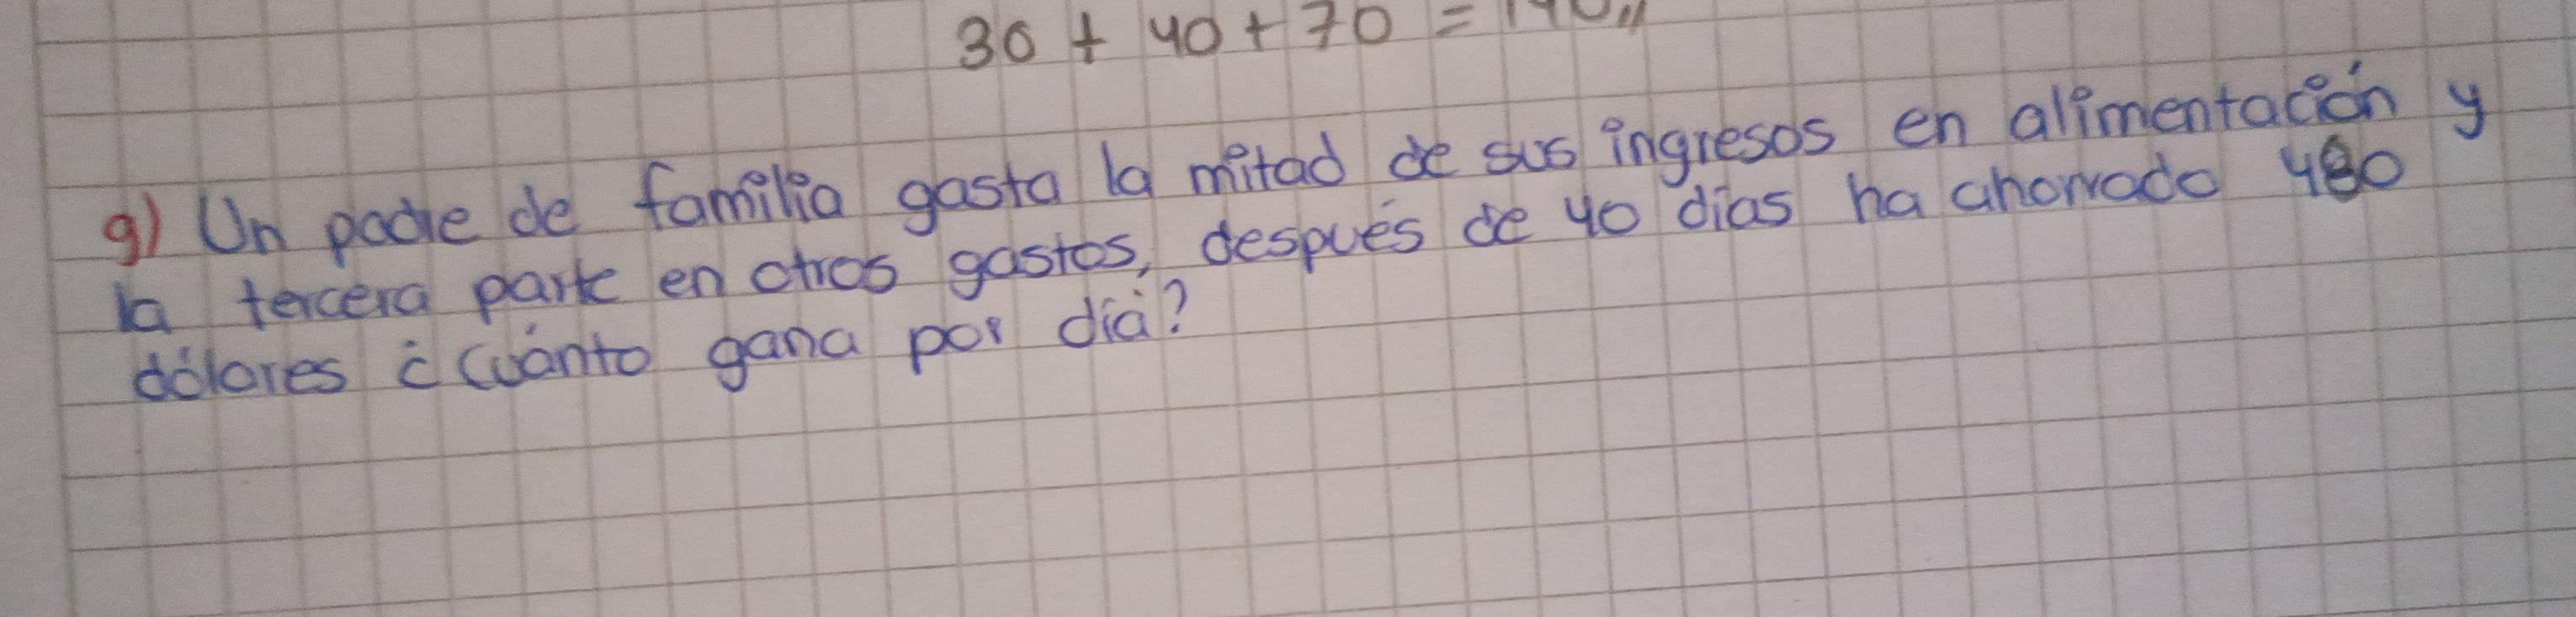 30 + 40 + 70 = 140,,
g) Un padre de familia gasta la mitad de sus ingresos en alimentación y
la tercera parte en otros gastos, después de 40 días ha ahorrado 480
dólares ¿Cuánto gana por día?